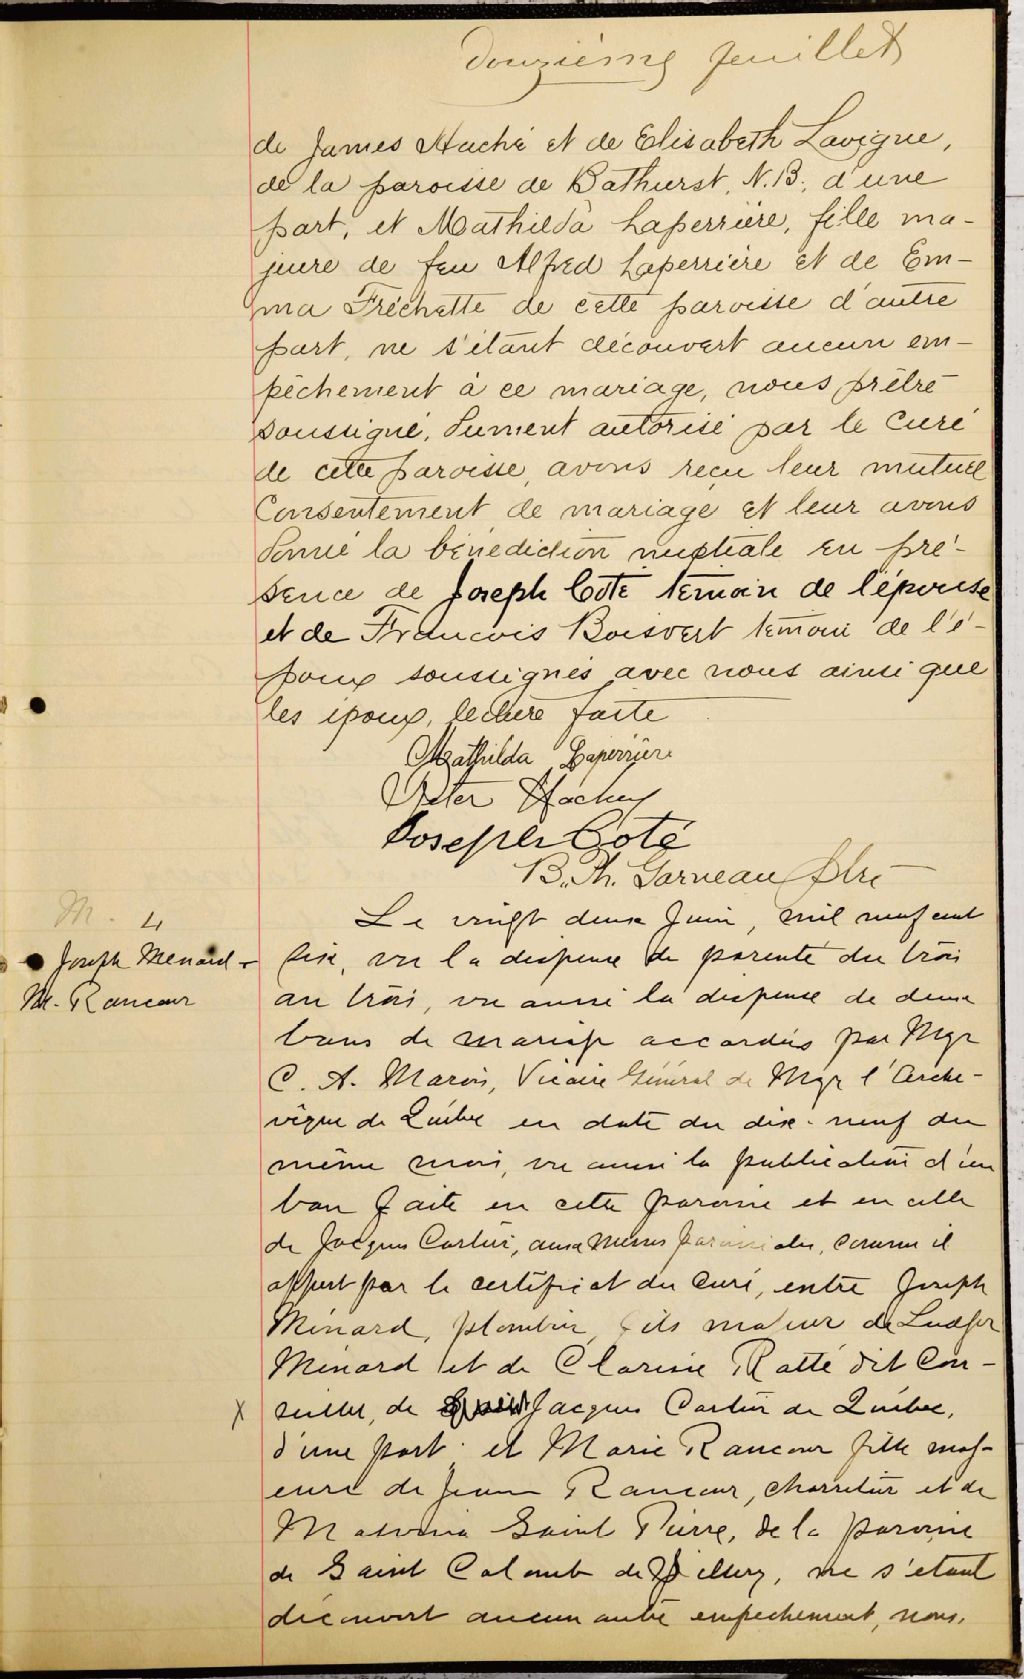 douzième feuillet
de James Haché et de Elisabeth Lavigne,
de la paroisse de Bathurst, N.B., d'une
part, et Mathilda Laperrière, fille ma-
jeure de feu Alfred Laperrière et de Em-
ma Fréchette de cette paroisse d'autre
part, ne s'étant découvert aucun em-
pêchement à ce mariage, nous prêtre
soussigné, dument autorisé par le Curé
de cette paroisse, avons reçu leur mutuel
Consentement de mariage et leur avons
donné la bénédiction nuptiale en pré-
sence de Joseph Coté témoin de l'épouse
et de Francois Boisvert témoin de l'é-
poux soussignés avec nous ainsi que
les époux, lecture faite
Mathilda Laperrière
Peter Hachey
Joseph Coté
B. Ph. Garneau Ptre
M. 4
Joseph Menard -
M. Rancour
Le vingt deux Juin, mil neuf cent
six, vu la dispense de parenté du trois
au trois, vu aussi la dispense de deux
bans de mariage accordées par Mgr
C. A. Marois, Vicaire Général de Mgr l'Arche-
vêque de Québec en date du dix-neuf du
même mois, vu aussi la publication d'un
ban faite en cette paroisse et en celle
de Jacques Cartier, aux Messes paroissiales, comme il
appert par le certificat du Curé, entre Joseph
Ménard, plombier, fils majeur de Ludger
Ménard et de Clarisse Ratté dit Con-
seiller, de Jacques Cartier de Québec,
d'une part; et Marie Rancour fille maj-
eure de Jean Rancour, charretier et de
Malvina Saint Pierre, de la paroisse
de Saint Colomb de Sillery, ne s'étant
découvert aucun autre empêchement, nous,
X